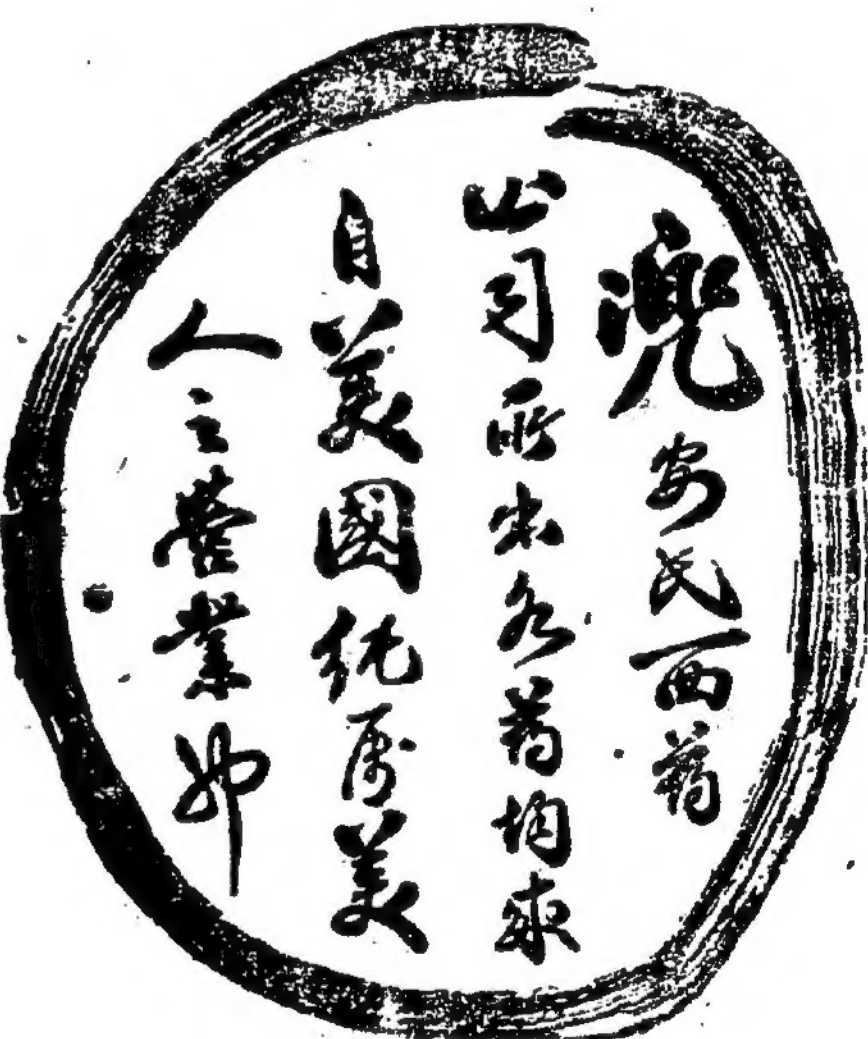 兜安氏西藥
公司所出各藥均來
自美國純属美
人之營業耶